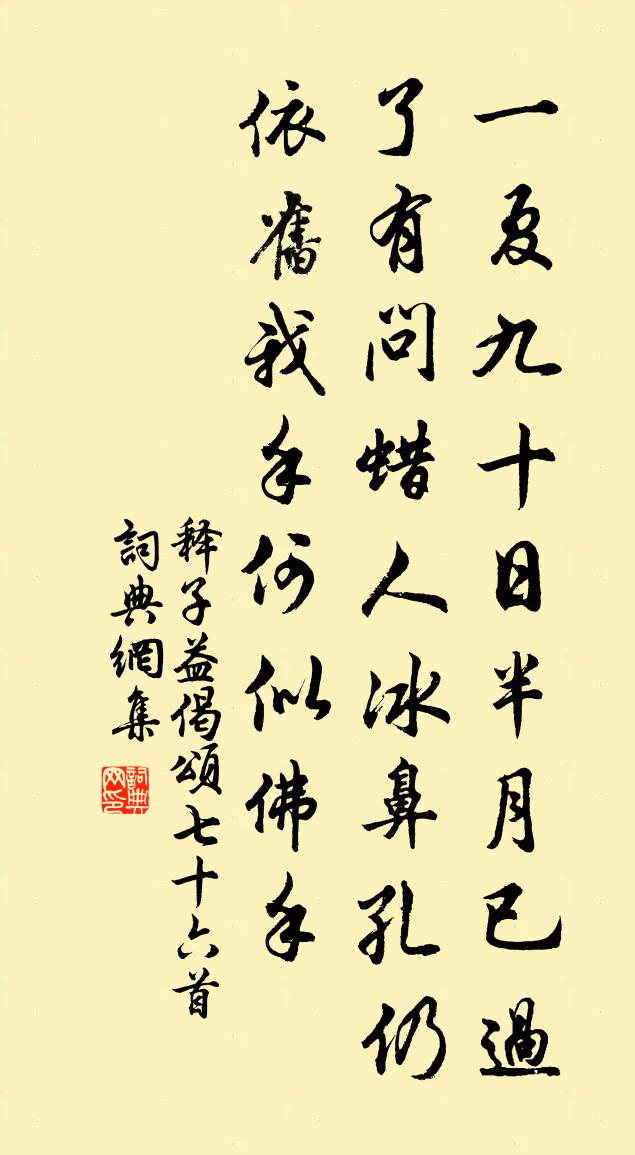 一夏九十日半月已過
了有問蜡人冰鼻孔仍
依舊我手何似佛手
释子益偈頌七十六首
詞典網集
詞典網印